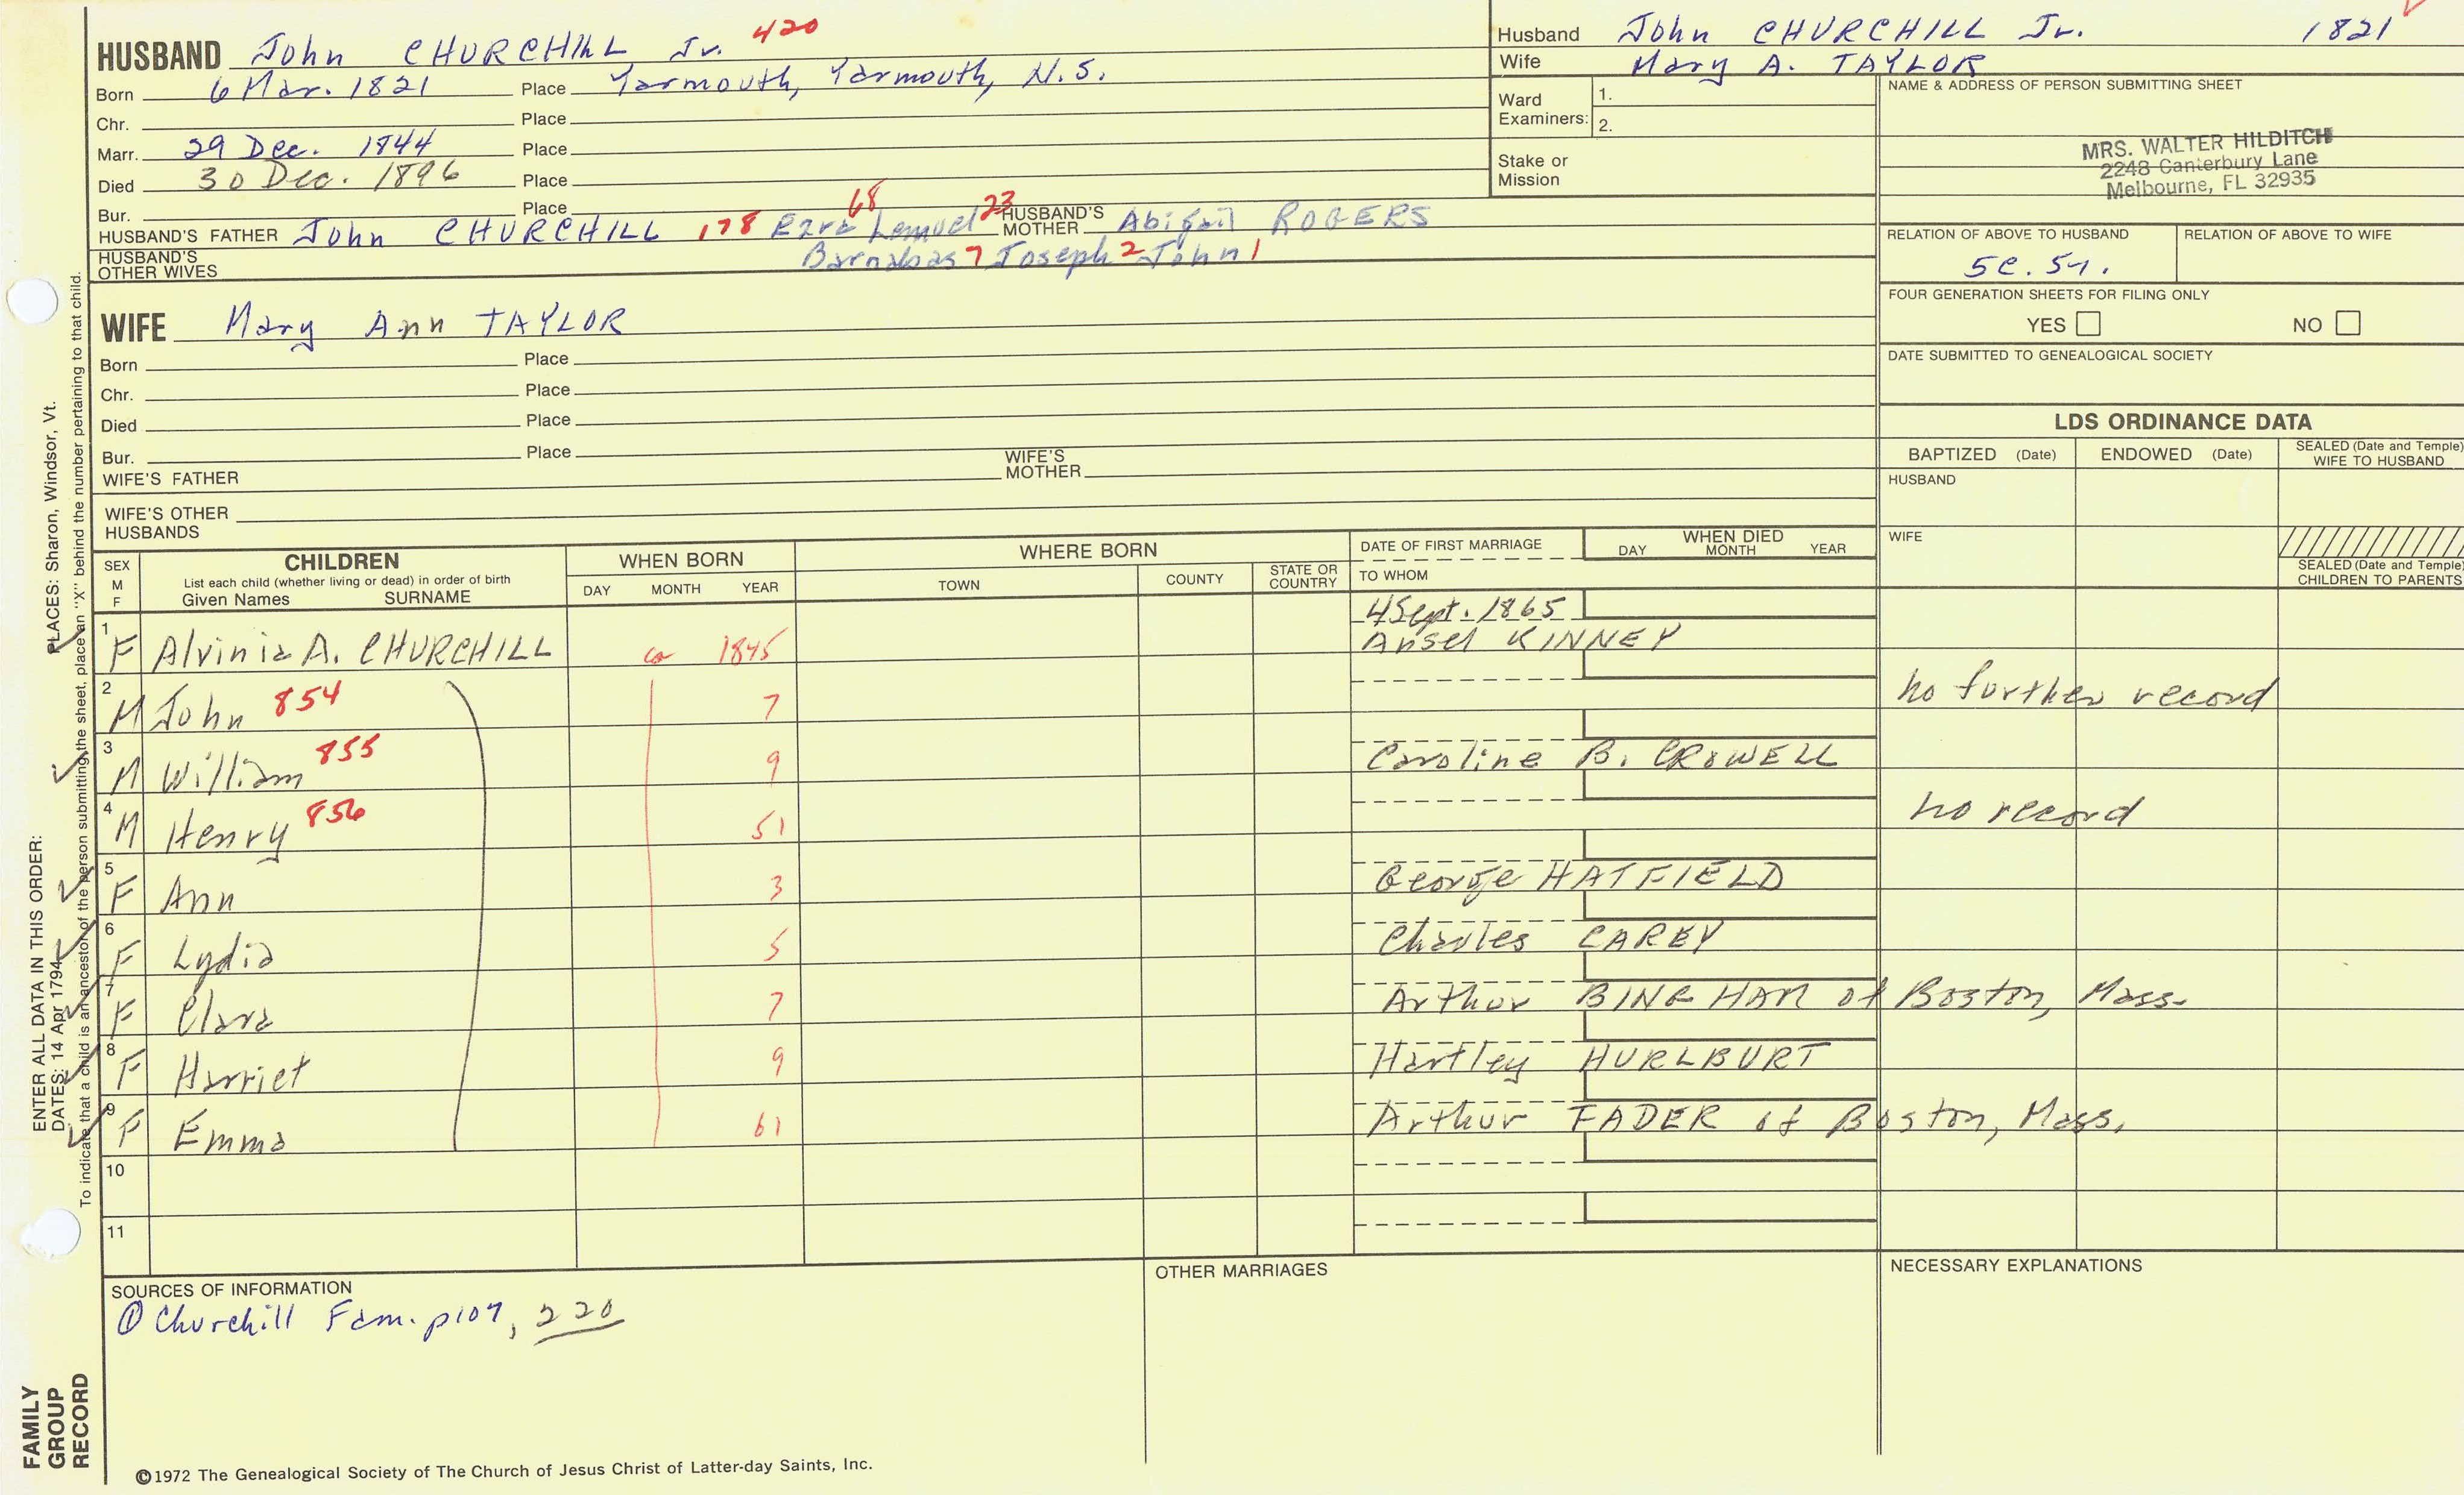 HUSBAND John CHURCHILL Jr. 420
Born 6 Mar. 1821 Place Yarmouth, Yarmouth, N.S.
Chr. Place
Marr. 29 Dec. 1844 Place
Died 30 Dec. 1896 Place
Bur. Place
HUSBAND'S FATHER John CHURCHILL 178 Ezra 68 Lemuel 23 HUSBAND'S MOTHER Abigail ROGERS
HUSBAND'S OTHER WIVES Barnabas 7 Joseph 2 John 1
Husband John CHURCHILL Jr. 1821
Wife Mary A. TAYLOR
Ward Examiners: 1.
2.
Stake or Mission
NAME & ADDRESS OF PERSON SUBMITTING SHEET
MRS. WALTER HILDITCH
2248 Canterbury Lane
Melbourne, FL 32935
RELATION OF ABOVE TO HUSBAND RELATION OF ABOVE TO WIFE
FOUR GENERATION SHEETS FOR FILING ONLY
YES NO
DATE SUBMITTED TO GENEALOGICAL SOCIETY
WIFE Mary Ann TAYLOR
Born Place
Chr. Place
Died Place
Bur. Place
WIFE'S FATHER WIFE'S MOTHER
WIFE'S OTHER HUSBANDS
LDS ORDINANCE DATA
BAPTIZED (Date) ENDOWED (Date) SEALED (Date and Temple) WIFE TO HUSBAND
HUSBAND
WIFE
SEALED (Date and Temple) CHILDREN TO PARENTS
SEX M F CHILDREN List each child (whether living or dead) in order of birth Given Names SURNAME WHEN BORN DAY MONTH YEAR WHERE BORN TOWN COUNTY STATE OR COUNTRY DATE OF FIRST MARRIAGE TO WHOM WHEN DIED DAY MONTH YEAR
4 Sept. 1865
1 F Alvinia A. CHURCHILL ca 1845 Ansel KINNEY
2 M John 854 7 no further record
3 M William 855 9 Caroline B. CROWELL
4 M Henry 856 51 no record
5 F Ann 3 George HATFIELD
6 F Lydia 5 Charles CAREY
7 F Clara 7 Arthur BINGHAM of Boston, Mass.
8 F Harriet 9 Hartley HURLBURT
9 F Emma 61 Arthur FADER of Boston, Mass.
10
11
SOURCES OF INFORMATION
① Churchill Fam. p107, 220
OTHER MARRIAGES
NECESSARY EXPLANATIONS
©1972 The Genealogical Society of The Church of Jesus Christ of Latter-day Saints, Inc.
FAMILY GROUP RECORD
ENTER ALL DATA IN THIS ORDER:
DATES: 14 Apr 1794 PLACES: Sharon, Windsor, Vt.
To indicate that a child is an ancestor of the person submitting the sheet, place an "X" behind the number pertaining to that child.